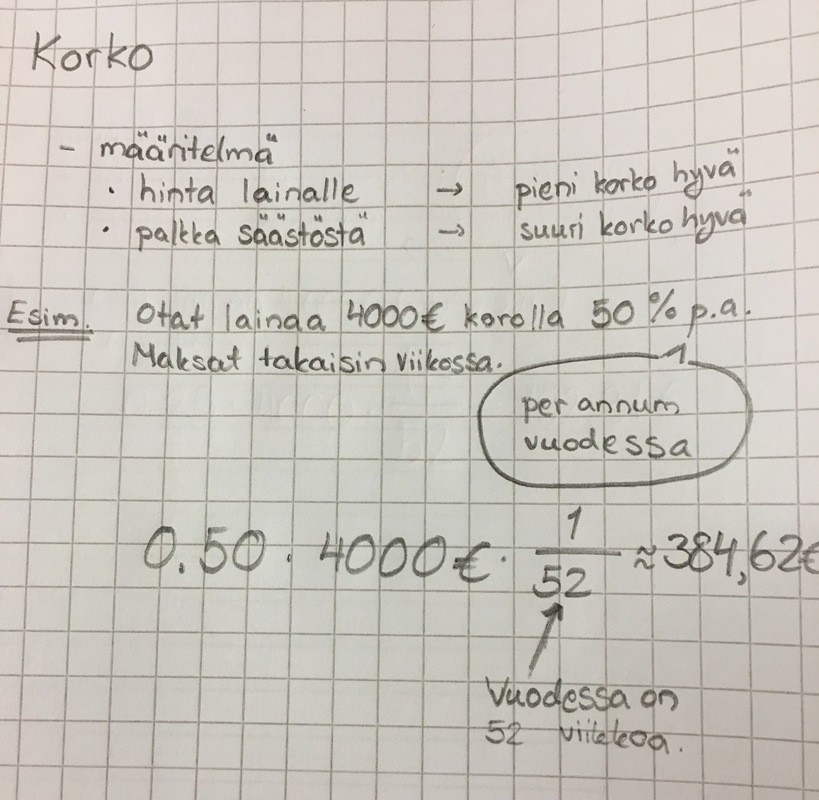 Korko
- määritelmä
· hinta lainalle → pieni korko hyvä
· palkka säästöstä → suuri korko hyvä
Esim. Otat lainaa 4000€ korolla 50 % p.a.
Maksat takaisin viikossa.
per annum
vuodessa
0.50 · 4000€ · 1/52 ≈ 384,62€
Vuodessa on
52 viikkoa.